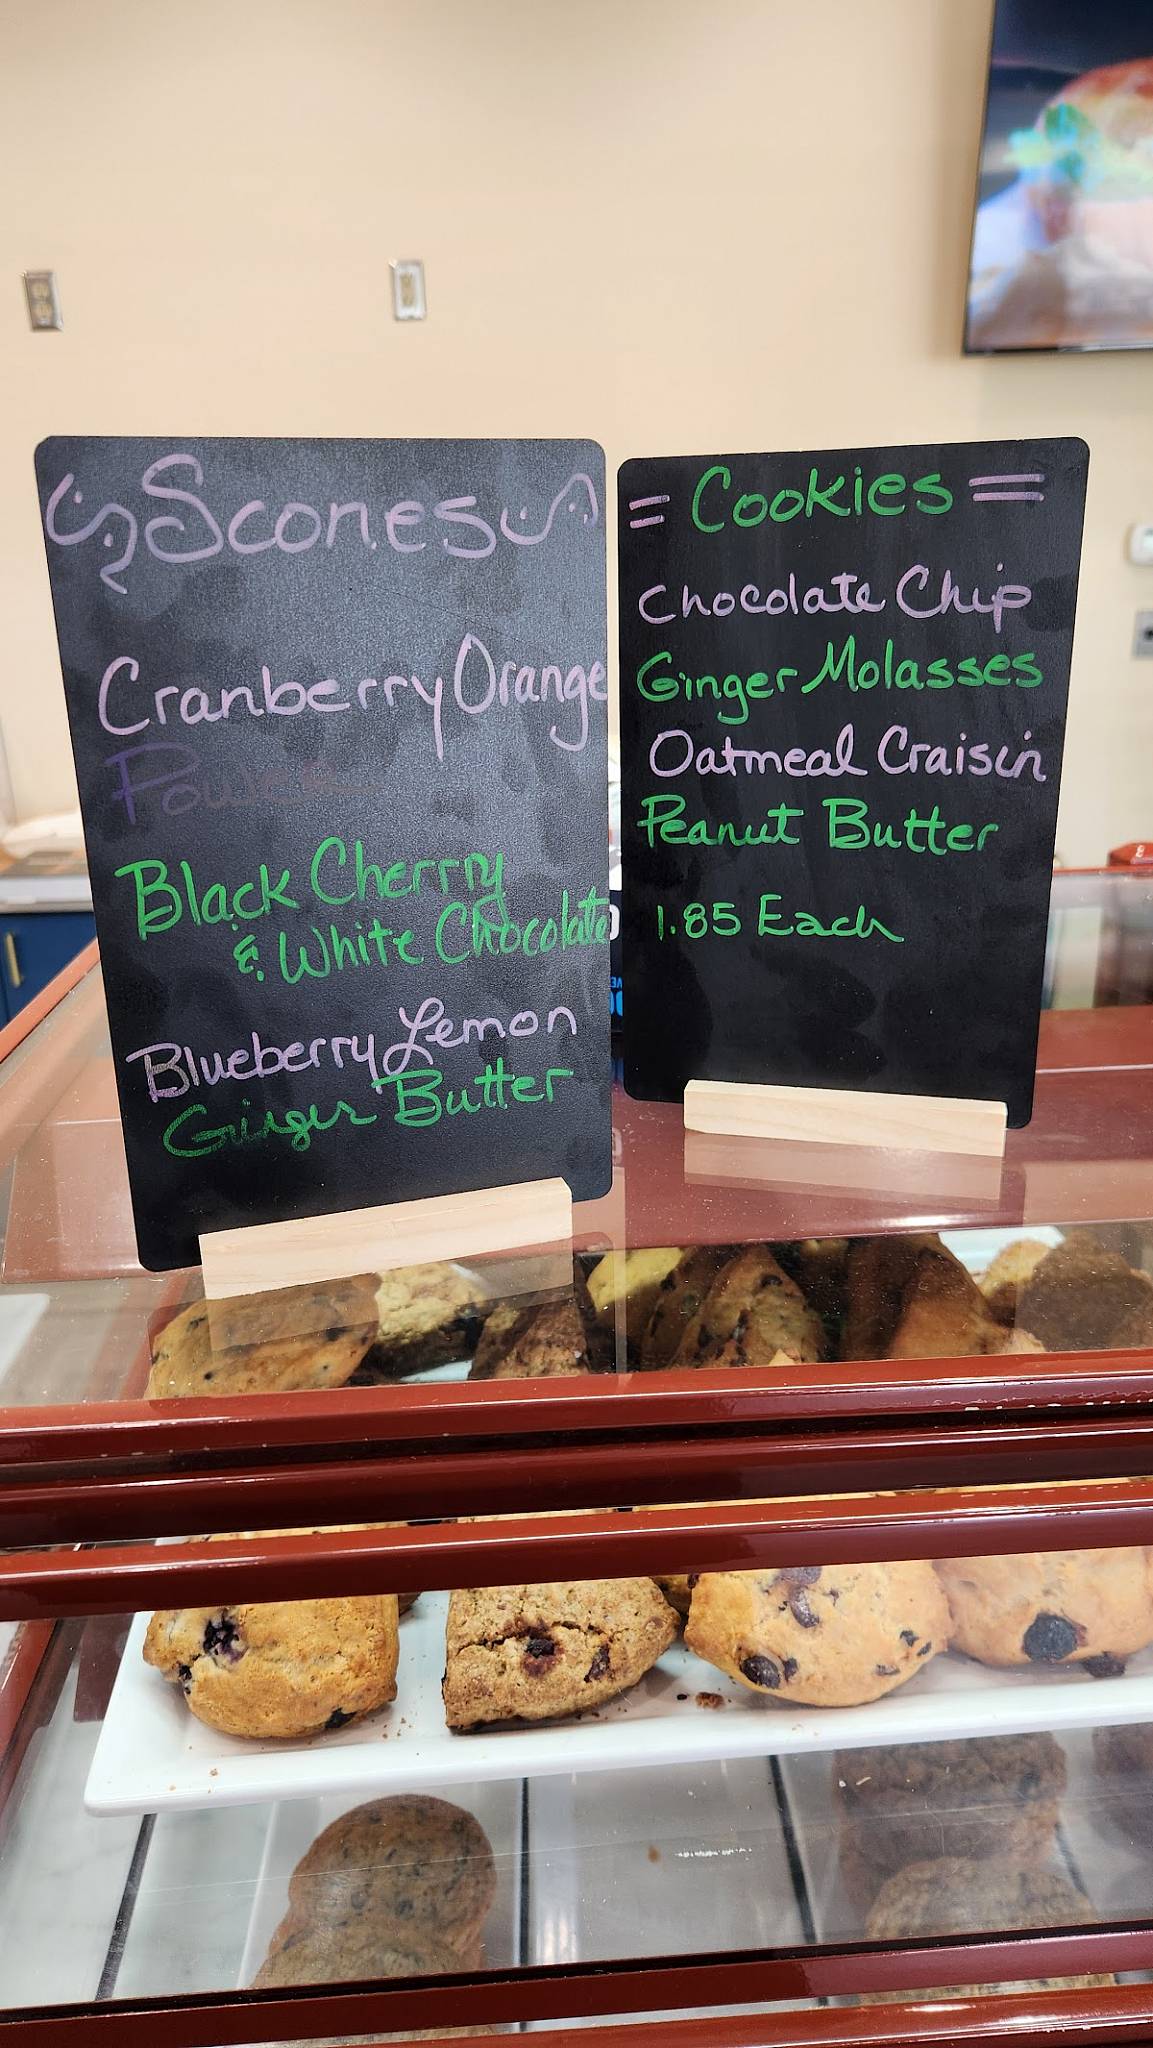 Scones
Cranberry Orange
Power
Black Cherrry
& White Chocolate
Blueberry Lemon
Ginger Butter
= Cookies =
Chocolate Chip
Ginger Molasses
Oatmeal Craisin
Peanut Butter
1.85 Each